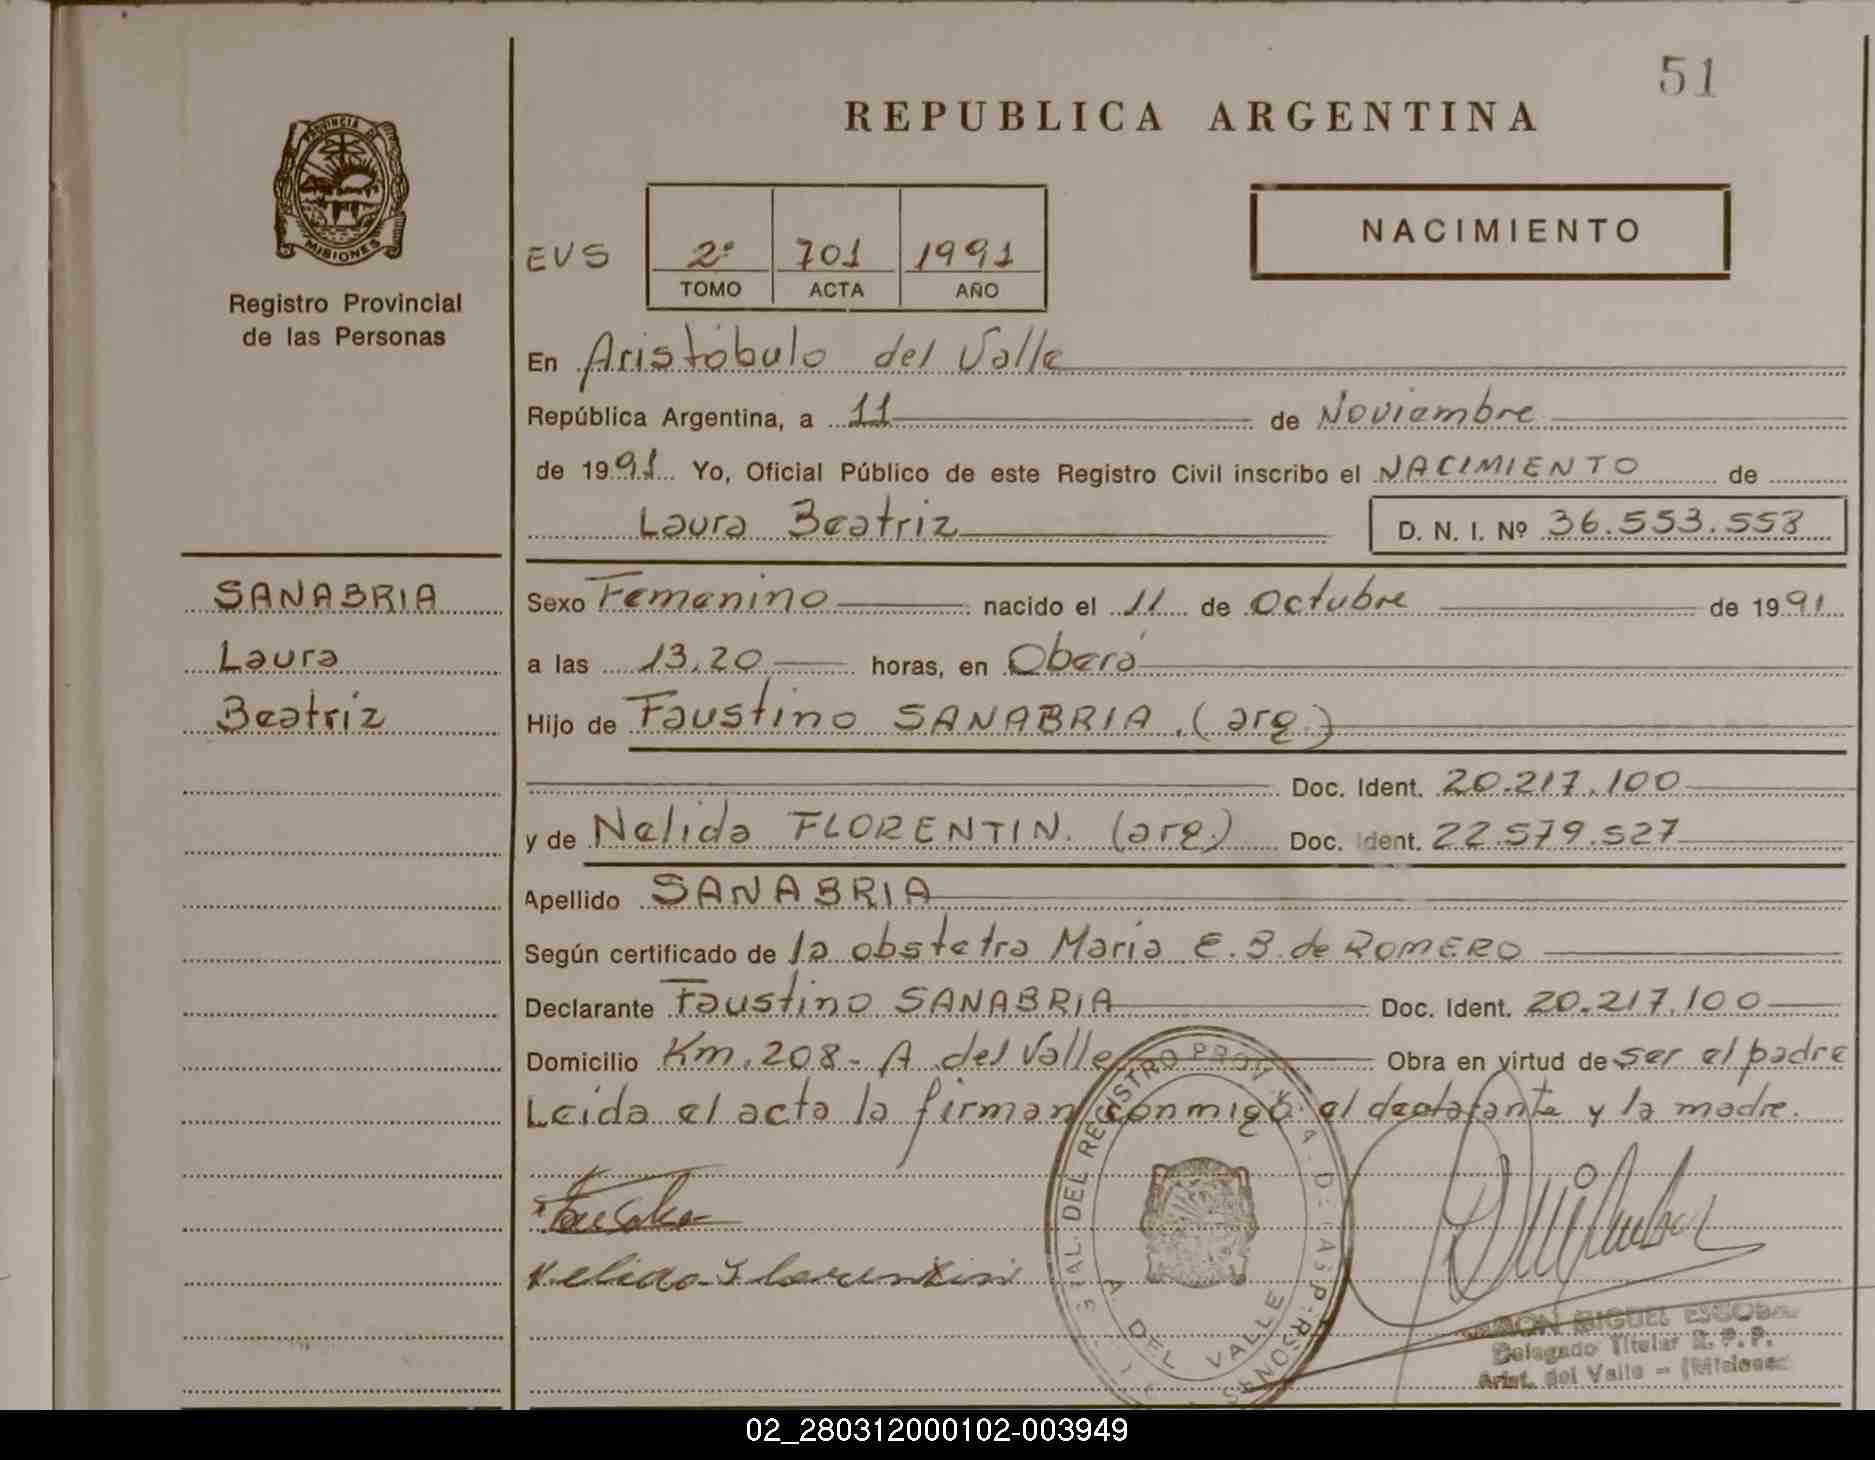 51
REPUBLICA ARGENTINA
PROVINCIA DE MISIONES
Registro Provincial
de las Personas
NACIMIENTO
EVS 2º 701 1991
TOMO ACTA AÑO
En Aristóbulo del Valle
República Argentina, a 11 de Noviembre
de 1991 Yo, Oficial Público de este Registro Civil inscribo el NACIMIENTO de
Laura Beatriz D. N. I. Nº 36.553.558
SANABRIA
Laura
Beatriz
Sexo Femenino nacido el 11 de Octubre de 1991
a las 13,20 horas, en Oberá
Hijo de Faustino SANABRIA (arg.)
Doc. Ident. 20.217.100
y de Nelida FLORENTIN. (arg.) Doc. Ident. 22.579.527
Apellido SANABRIA
Según certificado de la obstetra Maria E. B. de ROMERO
Declarante Faustino SANABRIA Doc. Ident. 20.217.100
Domicilio Km. 208 - A del Valle Obra en virtud de ser el padre
Leida el acta la firman conmigo el declarante y la madre.
Nelida Florentin
DEL REGISTRO PROV
A. DEL VALLE
MIGUEL ESCOBAR
Delegado Titular R. P. P.
Arist. del Valle - (Misiones)
02_280312000102-003949